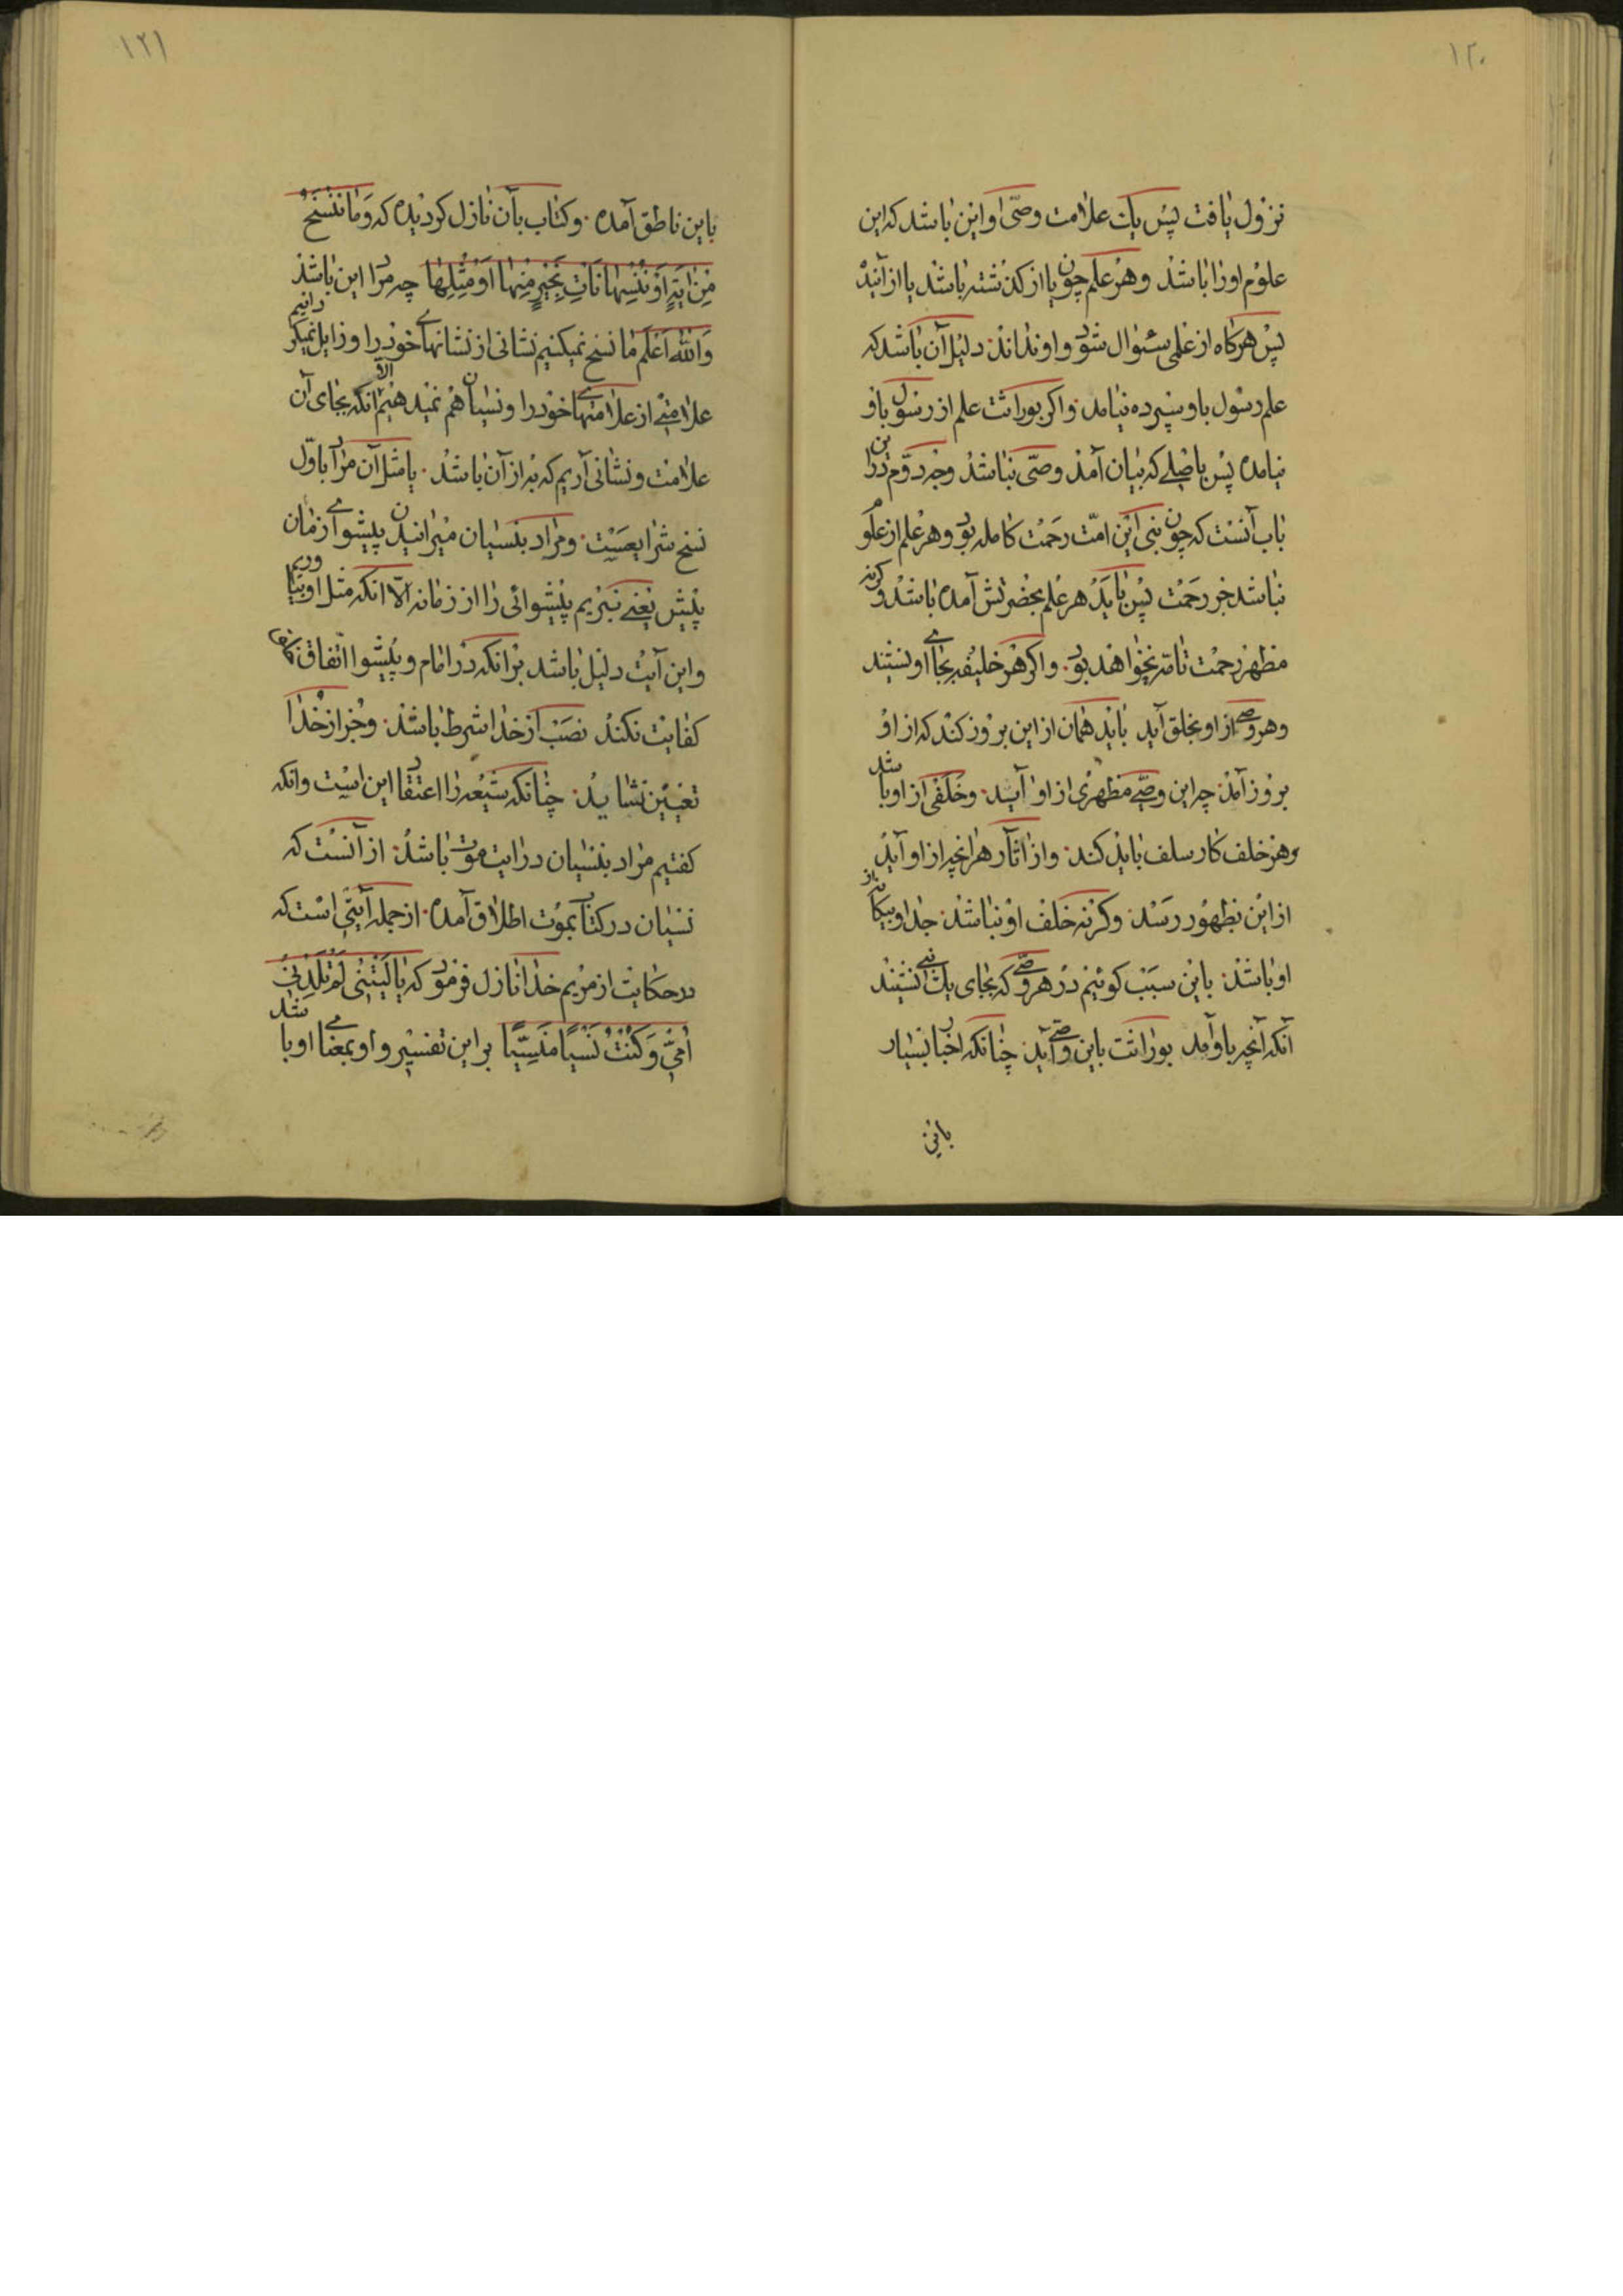 ۱۲۰
نزول یافت پس یک علامت وصیّ او این باشد که این
علوم اورا باشد وهر علم چون یا از کذشته باشد یا از آینده
پس هرکاه از علمی سئوال شود و او نداند دلیل آن باشد که
علم رسول باو سپرده نیامد واکر بوراثت علم از رسول باو
نیامده پس باصلی که بیان آمد وصیّ نباشد وجه دوّم در این
باب آنست که چون نبی این امّت رحمت کامله بود وهر علم از علوم
نباشد جز رحمت پس باید هر علم بحضرتش آمده باشد وکرنه
مظهر رحمت تامّه نخواهد بود واکر هر خلیفه بجای او نشیند
وهر وصی از او بخلق آید باید همان از این بروز کند که از او
بروز آمد چه این وصیّ مظهری از او آید وخلفی از او باشد
وهر خلف کار سلف باید کند واز آثار هرانچه از او آید
از این بظهور رسد وکرنه خلف او نباشد جدا و بیکانه از
او باشد باین سبب کوئیم در هر وصیّ که بجای یک نبی نشیند
آنکه آنچه باو آمد بوراثت باین وصیّ آید چنانکه اخبار بسیار
باین
۱۲۱
باین ناطق آمده وکتاب بآن نازل کردیده که وَمَا نَنْسَخْ
مِنْ ایَةٍ اَوْ نُنْسِهَا نَأتِ بِخَیْرٍ مِنْهَا اَوْ مِثْلِهَا چه مراد این باشد
وَاللّه اَعْلَم ما نسخ نمیکنیم نشانی از نشانهای خود را وزایل نمیکردانیم
علامتی از علامتهای خود را ونسیان هم نمیدهیم الّا انکه بجای آن
علامت ونشانی آریم که به از آن باشد یا مثل آن مراد باوّل
نسخ شرایعست ومراد بنسیان میرانیدن پیشوای زمان
پیش یعنی نبریم پیشوائی را از زمانه الّا انکه مثل او بیاوریم
واین آیت دلیل باشد برانکه در امام وپیشوا اتفاق
کفایت نکند نصب از خدا شرط باشد وجز از خدا
تعیین نشاید چنانکه شیعه را اعتقاد این است وانکه
کفتیم مراد بنسیان در ایت موت باشد از آنست که
نسیان در کتاب بموت اطلاق آمده از جمله آیتی است که
در حکایت از مریم خدا نازل فرمود که یَا لَیْتَنِی لَمْ تَلِدْنِی
اُمِّی وَکُنْتُ نَسْیًا مَنْسِیًّا بر این تفسیر واو بمعنای او باشد